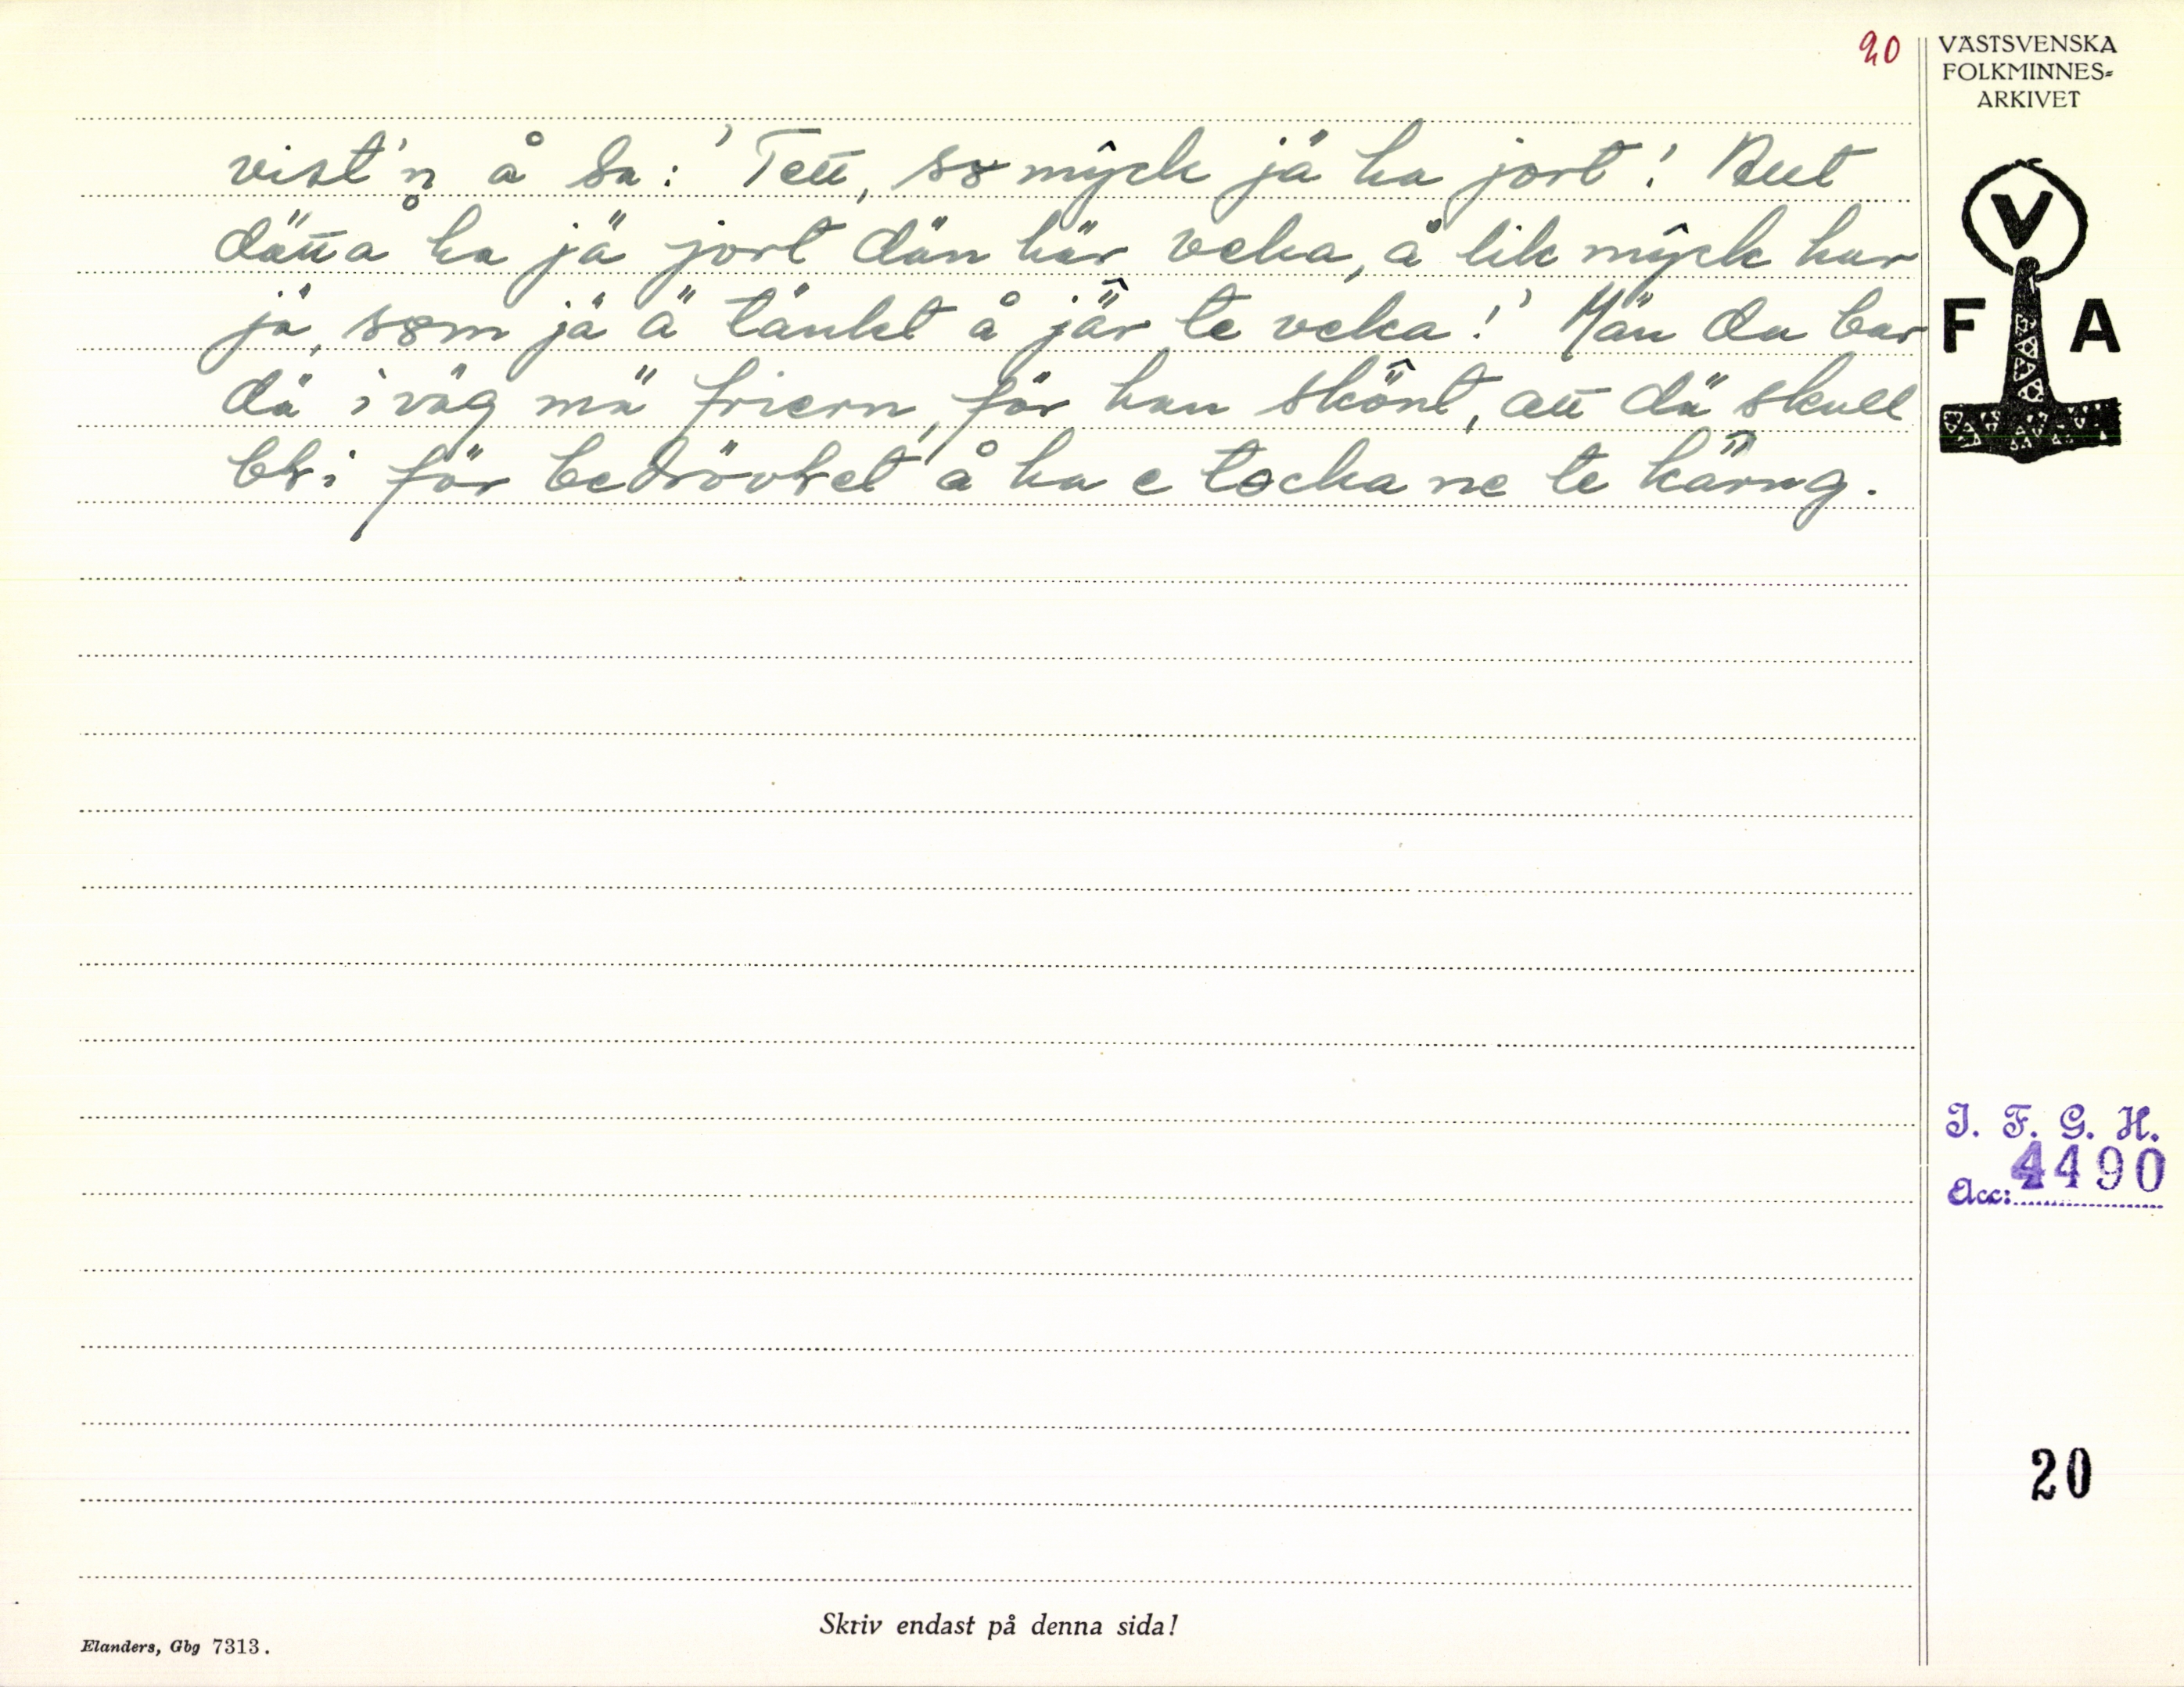 20
VÄSTSVENSKA
FOLKMINNES-
ARKIVET
V
F A
vist'n å sa: 'Tett, so mŷck jä ha jort! 
dätta ha jä jort dän här veka, å lik mŷck har
jä, som jä ä tänkt å jär te veka!' Män da bar
dä iväg mä friern, för han skönt, att dä skull
bli för bedrövlet å ha e tocka ne te kärng.
I. F. G. H.
Acc: 4490
20
Skriv endast på denna sida!
Elanders, Gbg 7313.